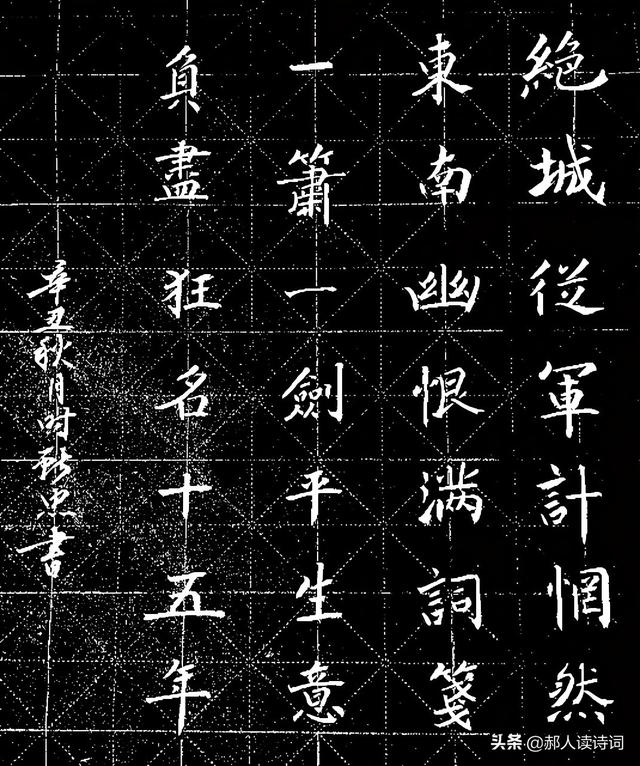 絕城從軍計惘然
東南幽恨滿詞箋
一簫一劍平生意
負盡狂名十五年
辛丑秋月时書
头条 @郝人读诗词